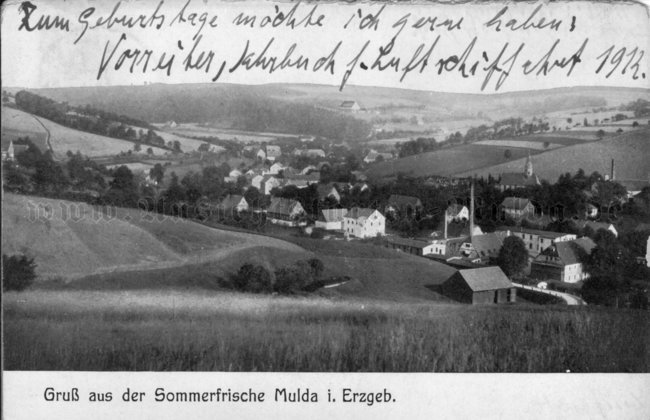 Zum Geburtstage möchte ich gerne haben:
Vorreiter, Jahrbuch f. Luftschiffahrt 1912.
Gruß aus der Sommerfrische Mulda i. Erzgeb.